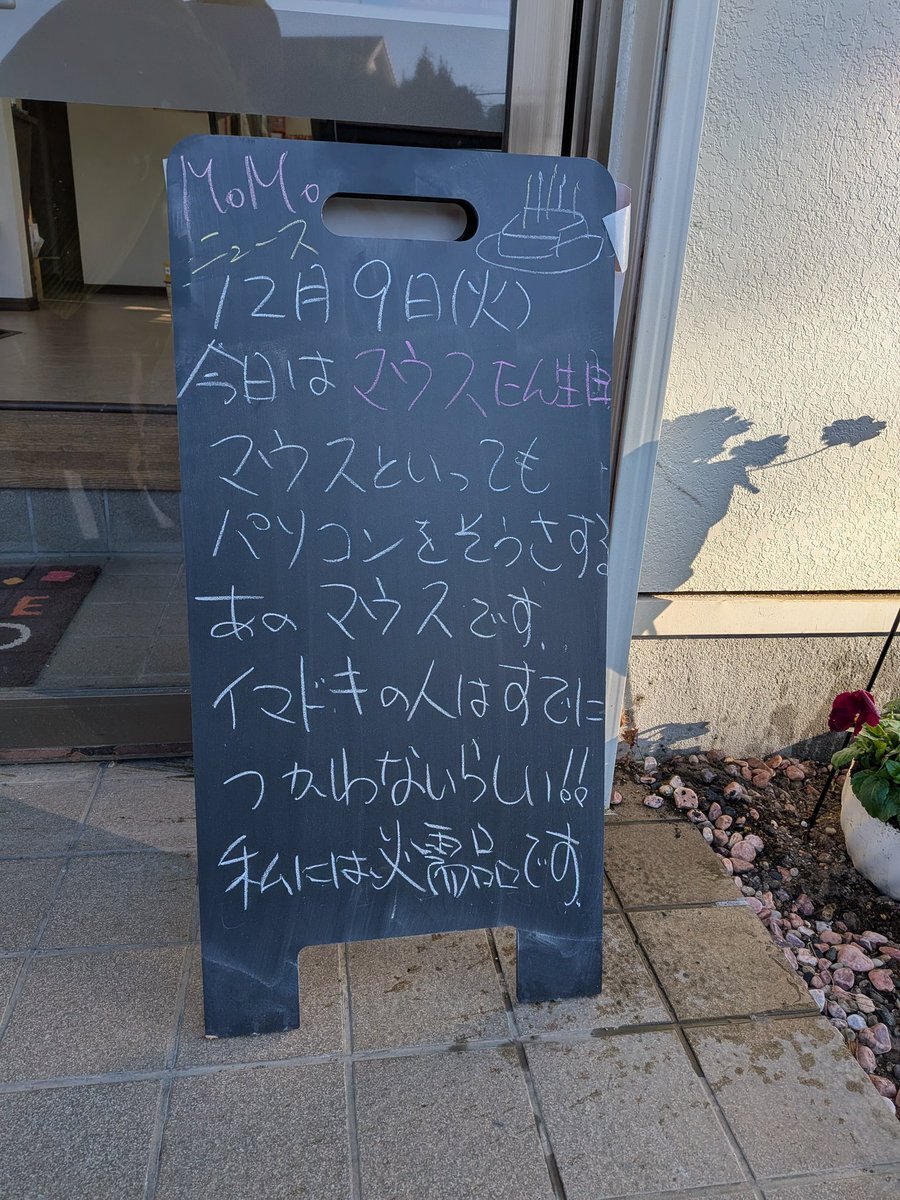 MoMo
ニュース
12月9日(火)
今日はマウスたん生日
マウスといっても
パソコンをそうさする
あのマウスです.
イマドキの人はすでに
つかわないらしい!!
私には必需品です.
E